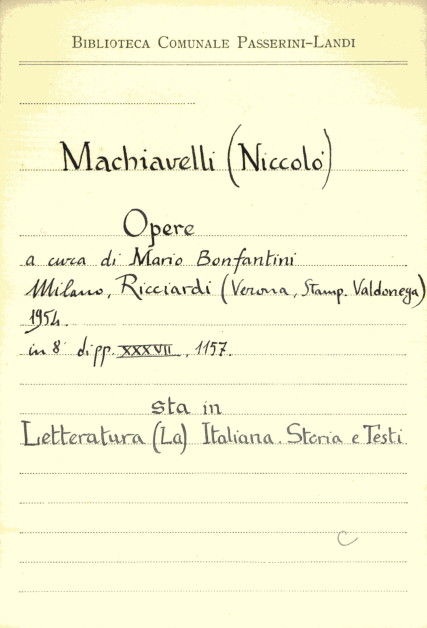 BIBLIOTECA COMUNALE PASSERINI-LANDI
Machiavelli (Niccolò)
Opere
a cura di Mario Bonfantini
Milano, Ricciardi (Verona, Stamp. Valdonega)
1954.
in 8° di pp. XXXVII, 1157.
sta in
Letteratura (La) Italiana. Storia e Testi
C